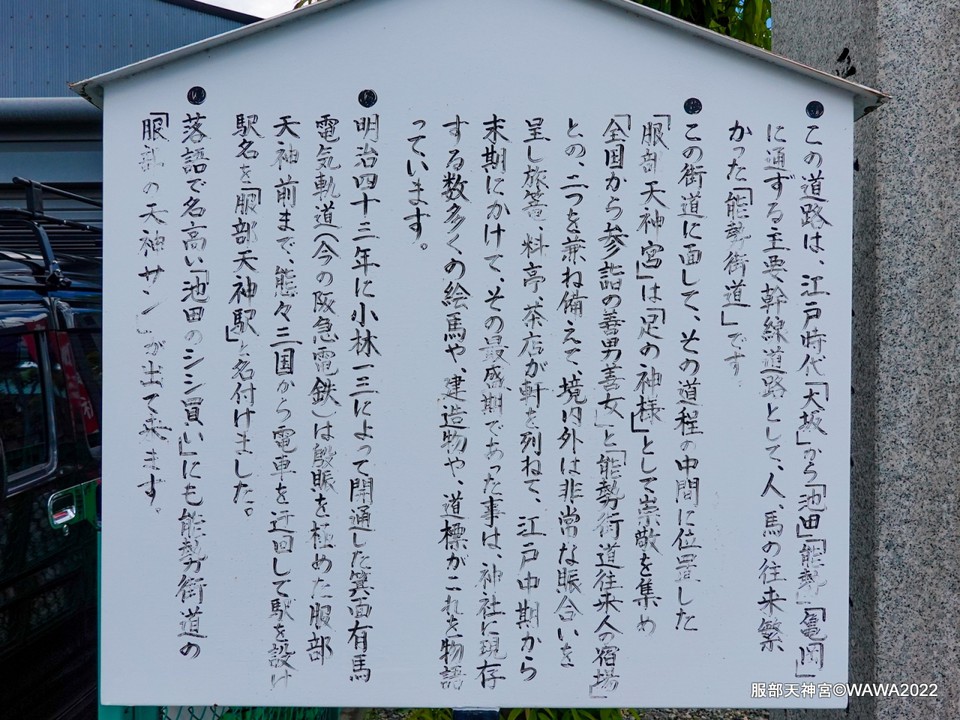 ●この道路は、江戸時代「大坂」から「池田」「能勢」「亀岡」
に通ずる主要幹線道路として、人、馬の往来繁
かった「能勢街道」です
●この街道に面して、その道程の中間に位置した
「服部天神宮」は「足の神様」として崇敬を集め
「全国から参詣の善男善女」と「能勢街道往来人の宿場」
との、二つを兼ね備えて、境内外は非常な賑合いを
呈し旅篭、料亭、茶店が軒を列ねて、江戸中期から
末期にかけて、その最盛期であった事は、神社に現存
する数多くの絵馬や、建造物や、道標がこれを物語
っています。
●明治四十三年に小林一三によって開通した箕面有馬
電気軌道(今の阪急電鉄)は殷賑を極めた服部
天神前まで、態々三国から電車を迂回して駅を設け
駅名を「服部天神駅」と名付けました。
●落語で名高い「池田のシシ買い」にも能勢街道の
「服部の天神サン」が出て来ます。
服部天神宮©WAWA2022